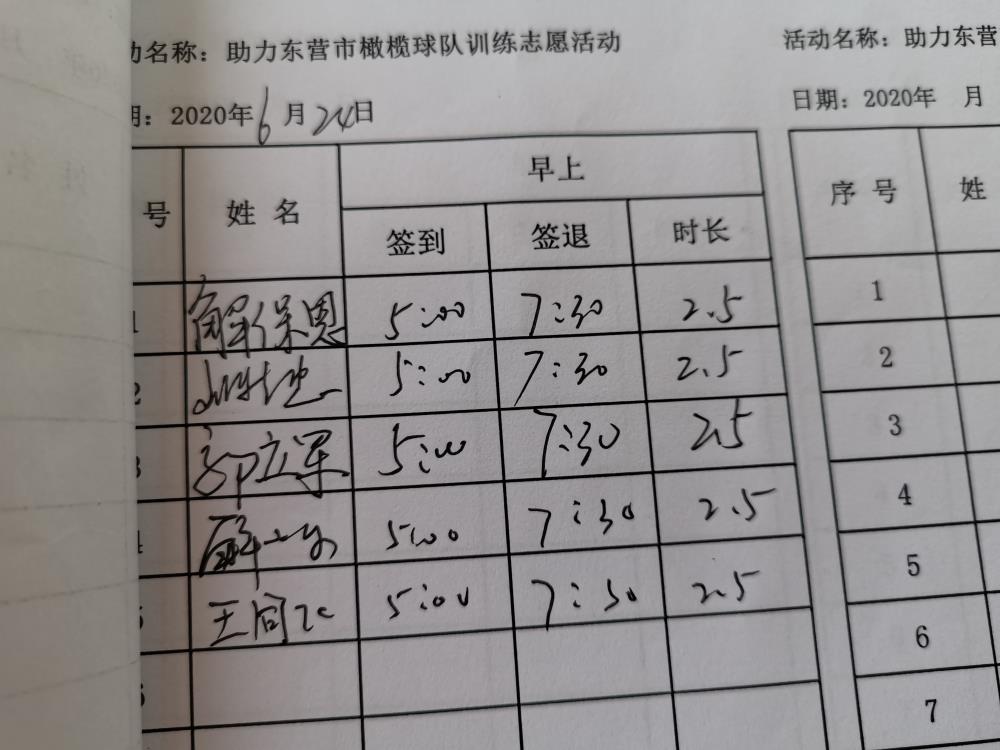 动名称：助力东营市橄榄球队训练志愿活动
期：2020年6月24日
号 姓名 早上
签到 签退 时长
1 解保恩 5:00 7:30 2.5
2 5:00 7:30 2.5
3 郭立军 5:00 7:30 2.5
4 5:00 7:30 2.5
5 王同 5:00 7:30 2.5
6
活动名称：助力东营
日期：2020年 月
序号 姓
1
2
3
4
5
6
7